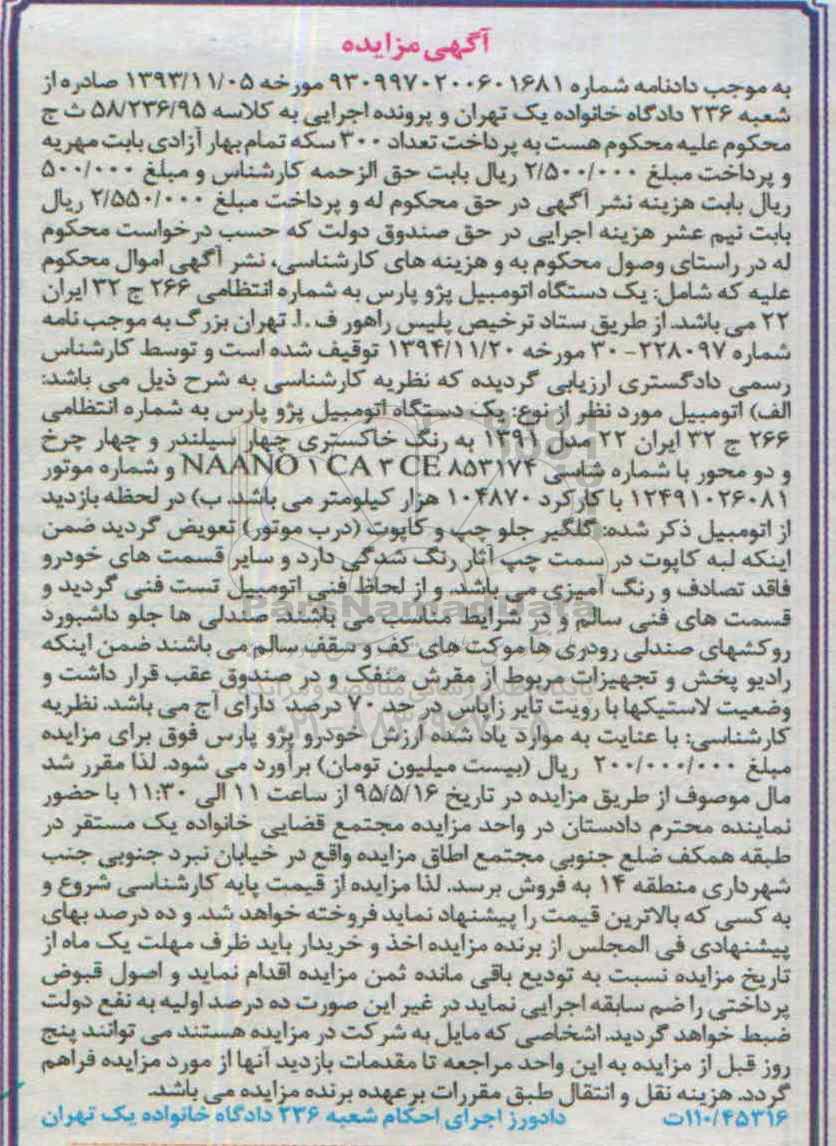 آگهی مزایده
به موجب دادنامه شماره ۹۳۰۹۹۷۰۲۰۰۶۰۱۶۸۱ مورخه ۱۳۹۳/۱۱/۰۵ صادره از
شعبه ۲۳۶ دادگاه خانواده یک تهران و پرونده اجرایی به کلاسه ۵۸/۲۳۶/۹۵ ث ج
محکوم علیه محکوم هست به پرداخت تعداد ۳۰۰ سکه تمام بهار آزادی بابت مهریه
و پرداخت مبلغ ۲/۵۰۰/۰۰۰ ریال بابت حق الزحمه کارشناس و مبلغ ۵۰۰/۰۰۰
ریال بابت هزینه نشر آگهی در حق محکوم له و پرداخت مبلغ ۲/۵۵۰/۰۰۰ ریال
بابت نیم عشر هزینه اجرایی در حق صندوق دولت که حسب درخواست محکوم
له در راستای وصول محکوم به و هزینه های کارشناسی، نشر آگهی اموال محکوم
علیه که شامل: یک دستگاه اتومبیل پژو پارس به شماره انتظامی ۲۶۶ ج ۳۲ ایران
۲۲ می باشد. از طریق ستاد ترخیص پلیس راهور ف . ا. تهران بزرگ به موجب نامه
شماره ۲۲۸۰۹۷-۳۰ مورخه ۱۳۹۴/۱۱/۲۰ توقیف شده است و توسط کارشناس
رسمی دادگستری ارزیابی گردیده که نظریه کارشناسی به شرح ذیل می باشد:
الف) اتومبیل مورد نظر از نوع: یک دستگاه اتومبیل پژو پارس به شماره انتظامی
۲۶۶ ج ۳۲ ایران ۲۲ مدل ۱۳۹۱ به رنگ خاکستری چهار سیلندر و چهار چرخ
و دو محور با شماره شاسی NAANO ۱ CA ۳ CE ۸۵۳۱۷۴ و شماره موتور
۱۲۴۹۱۰۲۶۰۸۱ با کارکرد ۱۰۴۸۷۰ هزار کیلومتر می باشد. ب) در لحظه بازدید
از اتومبیل ذکر شده: گلگیر جلو چپ و کاپوت (درب موتور) تعویض گردید ضمن
اینکه لبه کاپوت در سمت چپ آثار رنگ شدگی دارد و سایر قسمت های خودرو
فاقد تصادف و رنگ آمیزی می باشد. و از لحاظ فنی اتومبیل تست فنی گردید و
قسمت های فنی سالم و در شرایط مناسب می باشند. صندلی ها جلو داشبورد
روکشهای صندلی رودری ها موکت های کف و سقف سالم می باشند ضمن اینکه
رادیو پخش و تجهیزات مربوط از مقرش منفک و در صندوق عقب قرار داشت و
وضعیت لاستیکها با رویت تایر زاپاس در حد ۷۰ درصد دارای آج می باشد. نظریه
کارشناسی: با عنایت به موارد یاد شده ارزش خودرو پژو پارس فوق برای مزایده
مبلغ ۲۰۰/۰۰۰/۰۰۰ ریال (بیست میلیون تومان) برآورد می شود. لذا مقرر شد
مال موصوف از طریق مزایده در تاریخ ۹۵/۵/۱۶ از ساعت ۱۱ الی ۱۱:۳۰ با حضور
نماینده محترم دادستان در واحد مزایده مجتمع قضایی خانواده یک مستقر در
طبقه همکف ضلع جنوبی مجتمع اطاق مزایده واقع در خیابان نبرد جنوبی جنب
شهرداری منطقه ۱۴ به فروش برسد. لذا مزایده از قیمت پایه کارشناسی شروع و
به کسی که بالاترین قیمت را پیشنهاد نماید فروخته خواهد شد. و ده درصد بهای
پیشنهادی فی المجلس از برنده مزایده اخذ و خریدار باید ظرف مهلت یک ماه از
تاریخ مزایده نسبت به تودیع باقی مانده ثمن مزایده اقدام نماید و اصول قبوض
پرداختی را ضم سابقه اجرایی نماید در غیر این صورت ده درصد اولیه به نفع دولت
ضبط خواهد گردید. اشخاصی که مایل به شرکت در مزایده هستند می توانند پنج
روز قبل از مزایده به این واحد مراجعه تا مقدمات بازدید آنها از مورد مزایده فراهم
گردد. هزینه نقل و انتقال طبق مقررات برعهده برنده مزایده می باشد.
۱۱۰/۴۵۳۱۶ت دادورز اجرای احکام شعبه ۲۳۶ دادگاه خانواده یک تهران
ParsNamadData